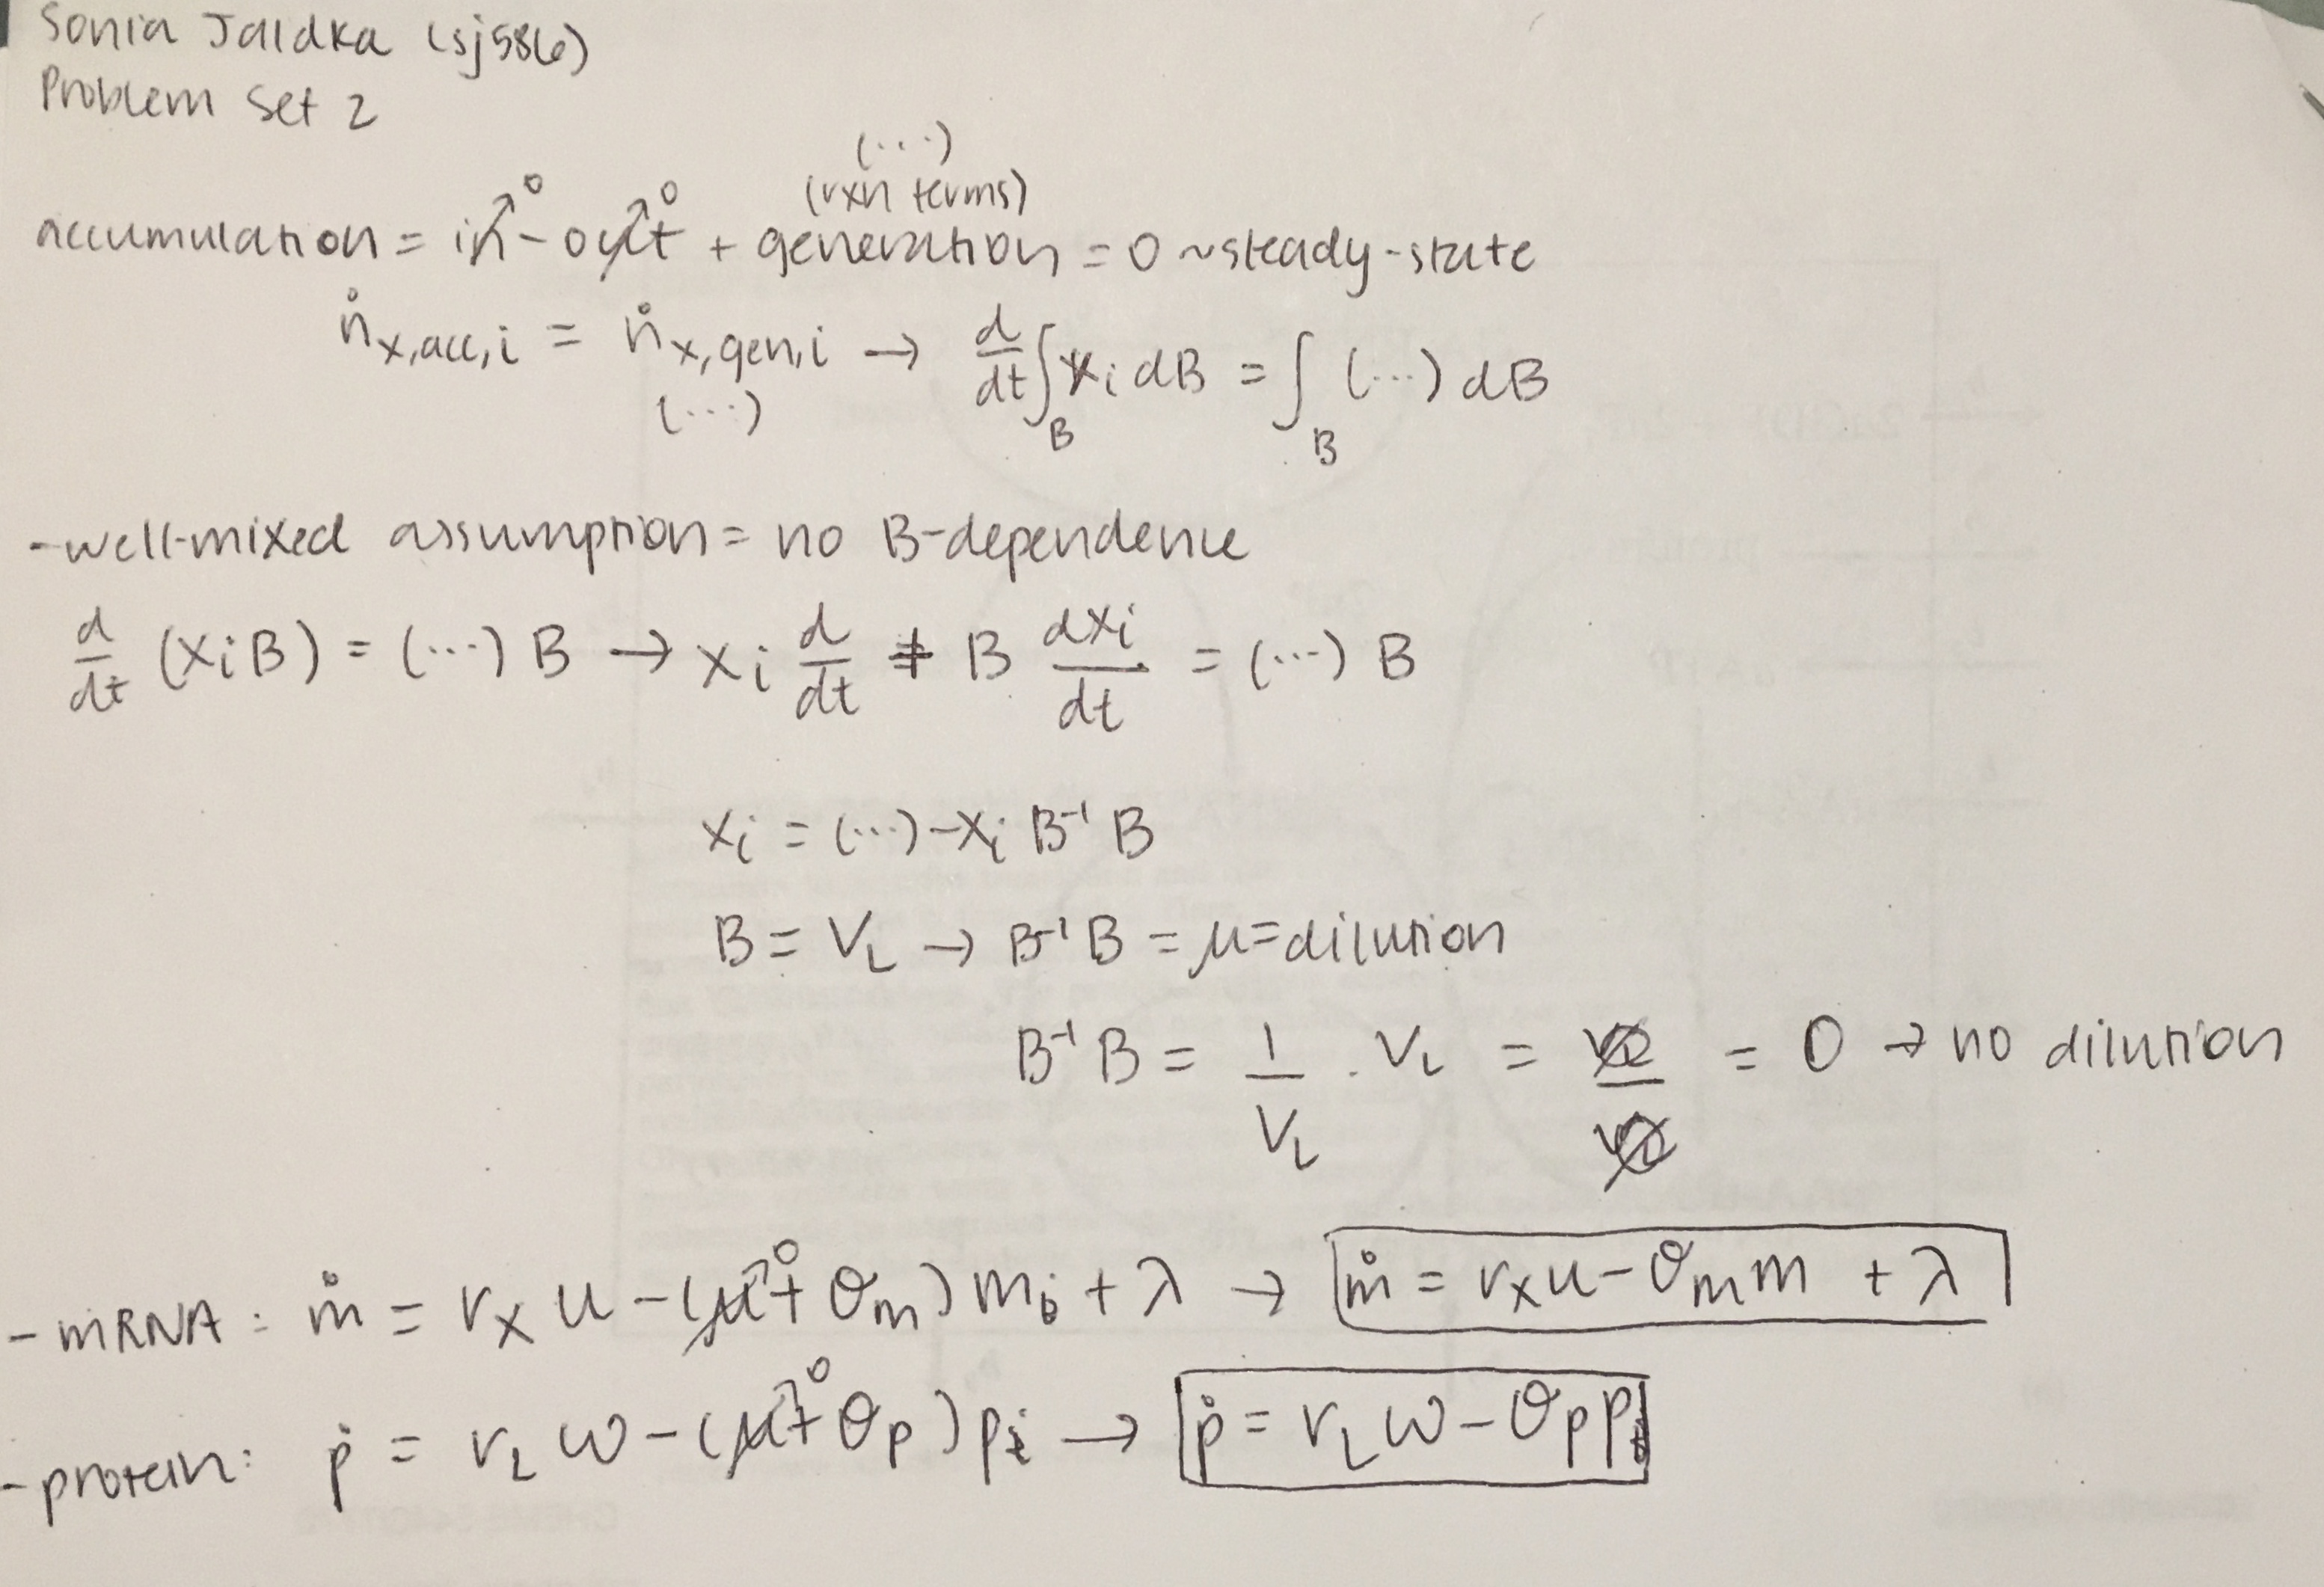 Sonia Jaldka (sj586)
Problem Set 2
(...)
(rxn terms)
accumulation = in→0 - out→0 + generation = 0 ~steady-state
ṅx,acc,i = ṅx,gen,i → d/dt ∫B xi dB = ∫B (...) dB
(...)
-well-mixed assumption = no B-dependence
d/dt (xiB) = (...) B → xi d/dt + B dxi/dt = (...) B
xi = (...) - xi B⁻¹ B
B = VL → B⁻¹B = μ = dilution
B⁻¹B = 1/VL · VL = = 0 → no dilution
-mRNA: ṁ = rx u - (μ→0 + θm) mi + λ → ṁ = rxu - θmm + λ
-protein: ṗ = rL w - (μ→0 + θp) pi → ṗ = rLw - θpp